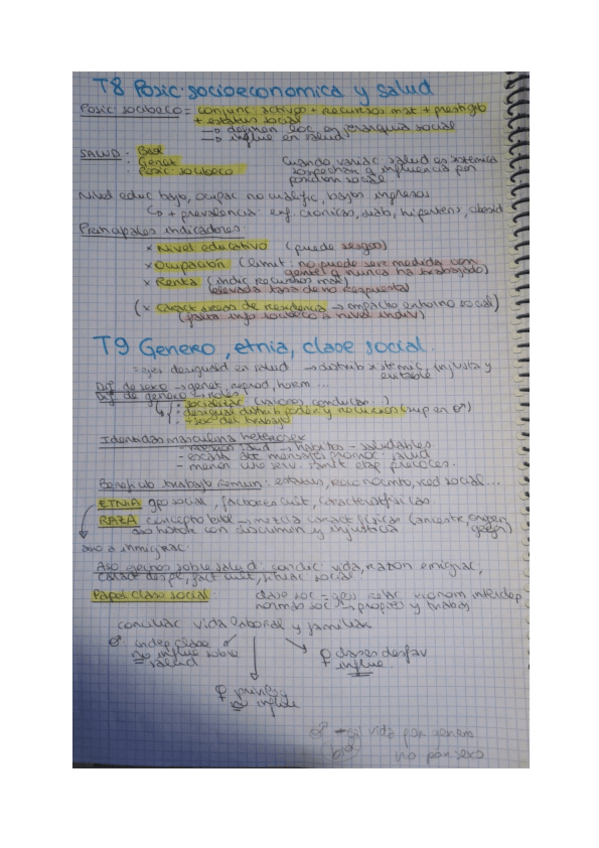 T8 Posic. socioeconomica y salud
Posic. socioeco = conjunc activos + recursos mat + prestigio
+ estatus social
→ definen loc en jerarquia social
→ influe en salud
SALUD: · Biol
· Genet
· Posic. socioeco
Cuando variac. salud es sistemica
sospechan q influencia por
posicion social
Nivel educ bajo, ocupac no cualific, bajos ingresos
↳ + prevalencia: enf. cronicas, diab, hipertens, obesid
Principales indicadores:
× Nivel educativo (puede sesgos)
× Ocupación (limit: no puede ser medida con
gente q nunca ha trabajado)
× Renta (indic recursos mat)
elevada tasa de no respuesta)
(× Caract areas de residencia → empacto entorno social)
(falta info socioeco a nivel indiv)
T9 Genero, etnia, clase social.
= ejes desigualdad en salud → distrib sistemic, injusta y
evitable
Dif de sexo → genet, reprod, horm...
Dif de genero → roles
· socializac (valores, conductas..)
· desigual distrib poder y recursos (sup en ♂)
· + soc del trabajo
Identidad masculina heterosex
- riesgos salud → habitos - saludables
- escasa atc mensajes promoc. salud
- menor uso serv. sanit etap precoces.
Beneficio trabajo remun: estatus, reconocimto, red social...
ETNIA gpo social, factores cult, caracteristicas
RAZA concepto biol → mezcla caract fisicas (ancestr, origen
geogr)
aso histor con discrimin y injusticia
aso a inmigrac.
Aso efectos sobre salud: condic. vida, razon emigrac,
caract despl, fact cult, situac social
Papel clase social:
clase soc = gpos relac econom interdep
normas soc → propiet y trabaj
conciliac vida laboral y familiar
♂: indep clase
no influe sobre
salud
♀ privileg
no influe
♀ clases desfav
influe
♂ - cal vida por genero
no por sexo